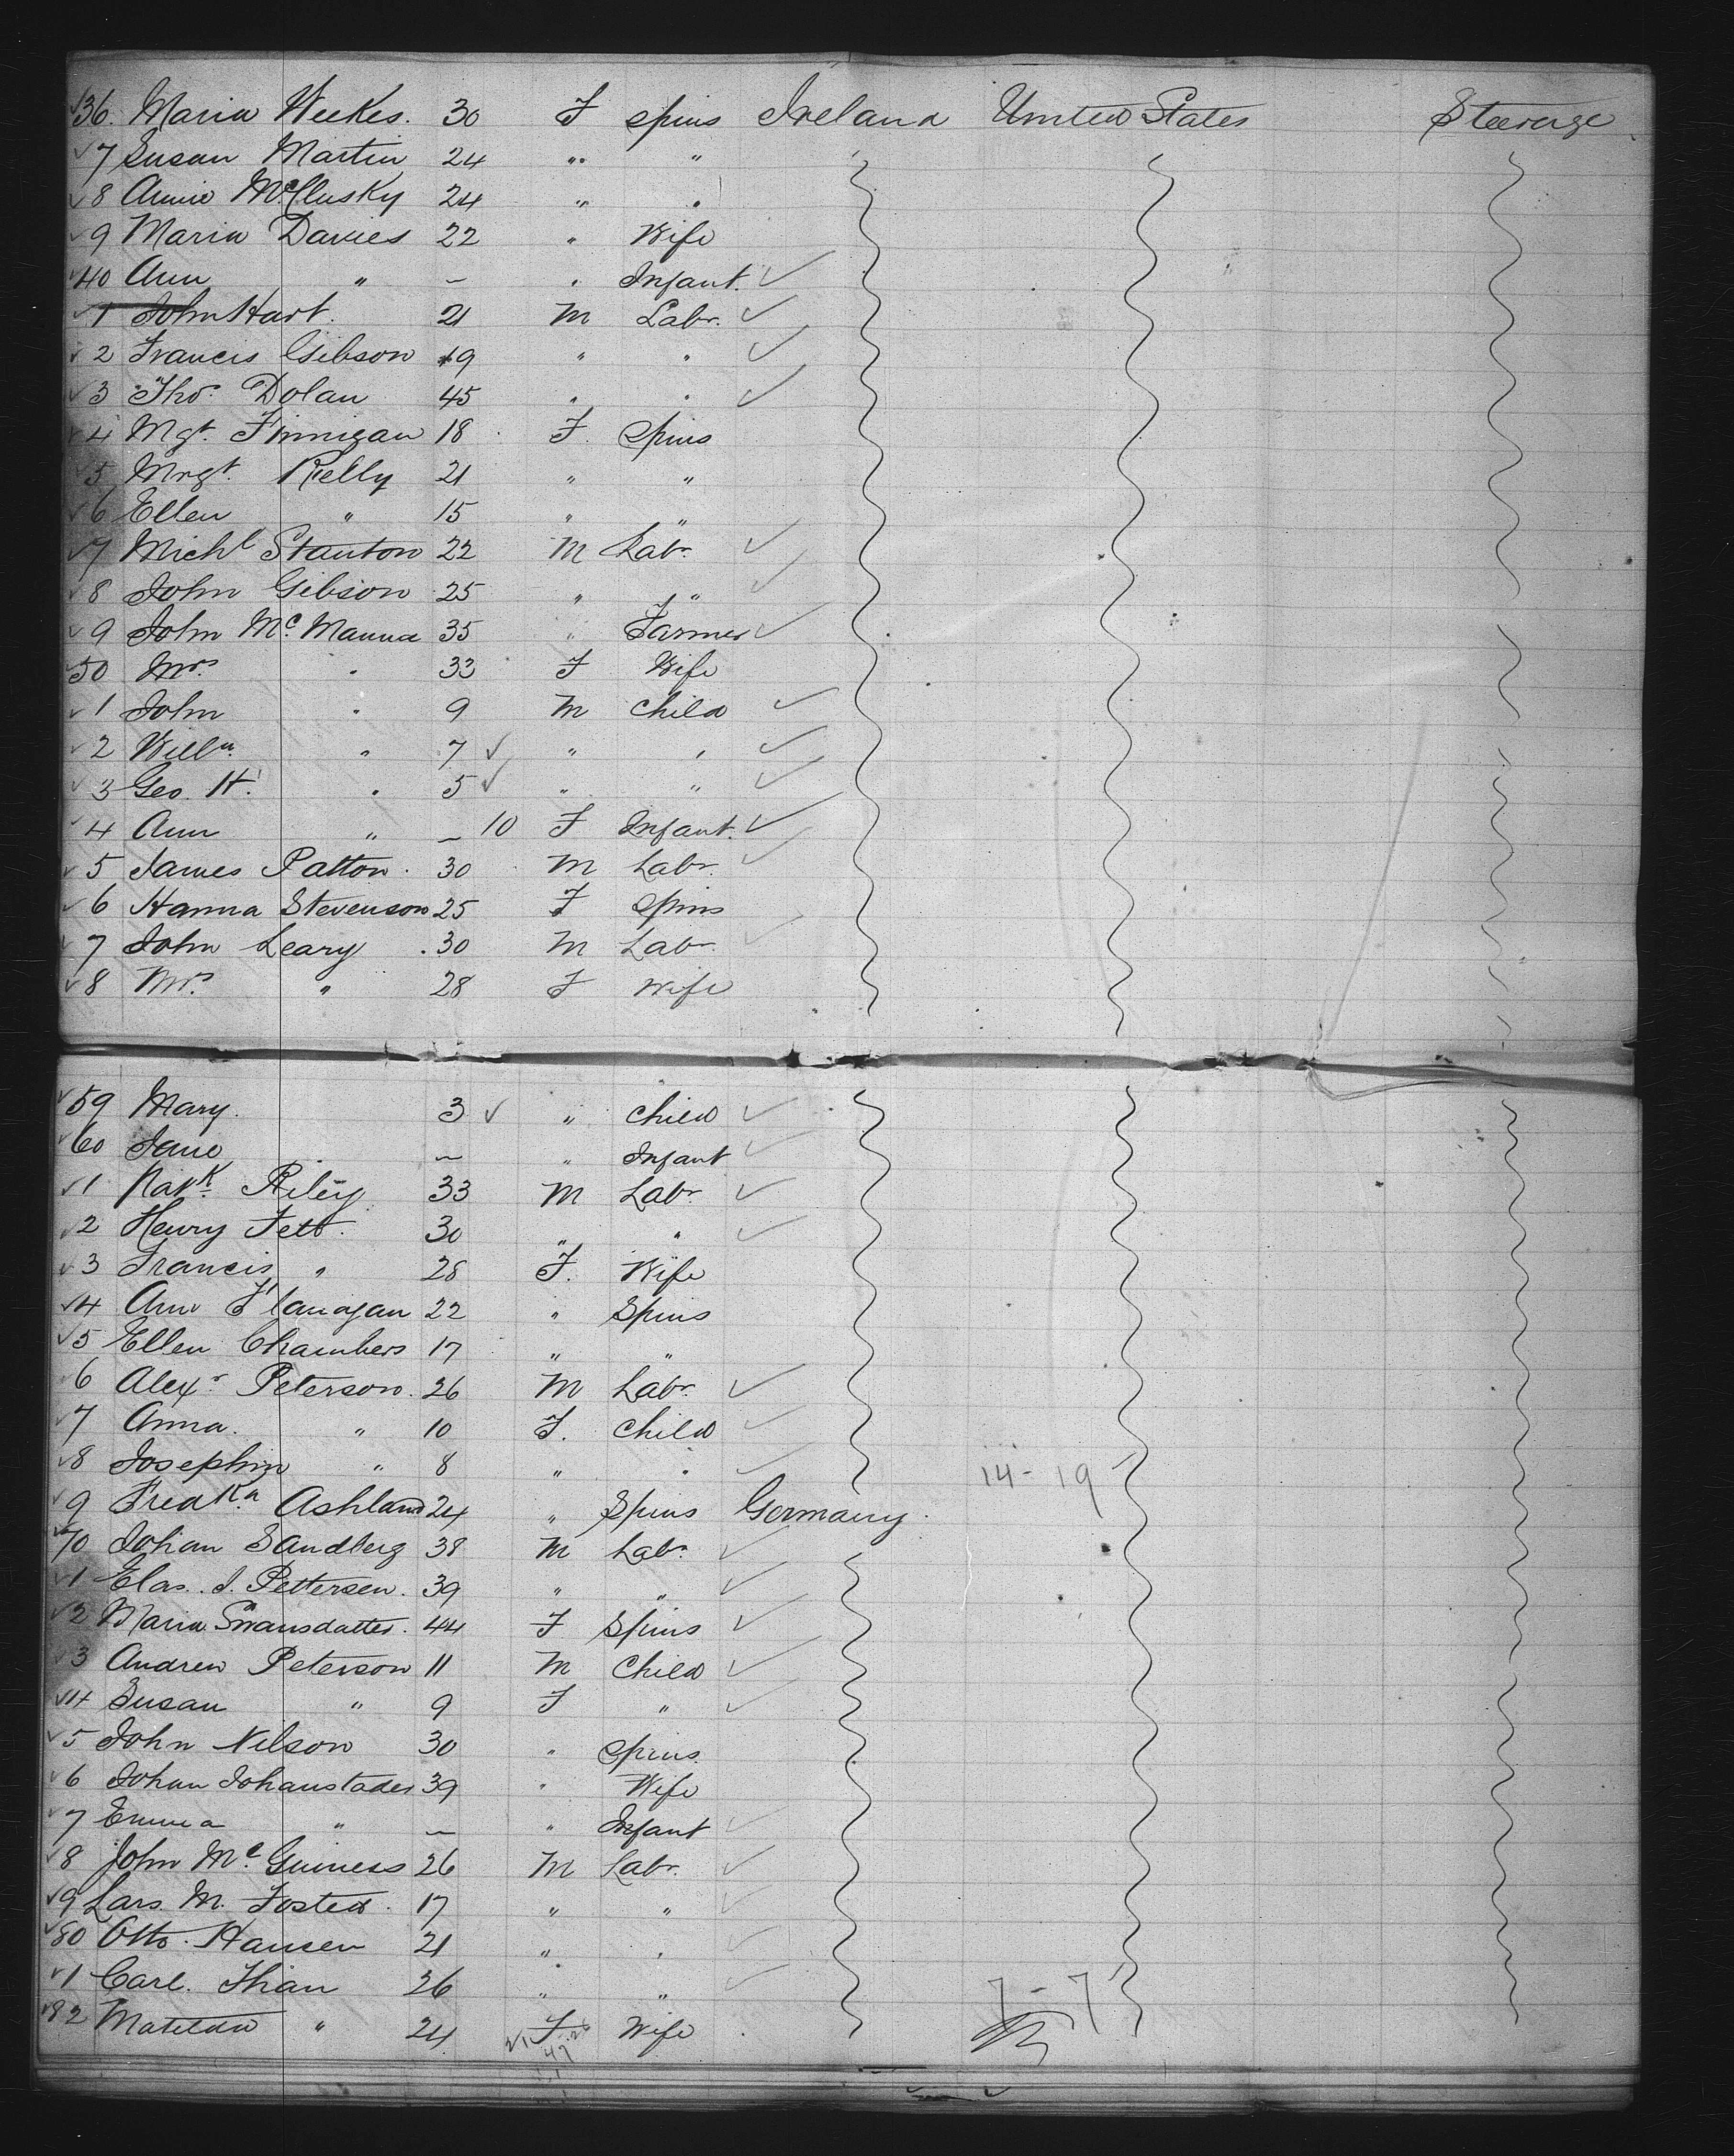 36. Maria Weekes. 30 F Spins Ireland United States Steerage
7 Susan Martin 24 " "
8 Annie McClusky 24 " "
9 Maria Davies 22 " Wife
40 Ann " — " Infant.
1 John Hart. 21 M Labr.
2 Francis Gibson 19 " "
3 Thos. Dolan 45 " "
4 Mgt. Finnigan 18 F Spins
5 Mrgt. Rielly 21 " "
6 Ellen " 15 " "
7 Michl Stanton 22 M Labr.
8 John Gibson 25 " "
9 John Mc. Manna 35 " Farmer
50 Mrs " 33 F Wife
1 John " 9 M Child
2 Willm. " 7 " "
3 Geo. H. " 5 " "
4 Ann " — 10 F Infant.
5 James Patton. 30 M Labr.
6 Hanna Stevenson 25 F Spins
7 John Leary. 30 M Labr.
8 Mrs. " 28 F Wife
59 Mary. 3 " Child
60 Jane — " Infant
1 Patk. Riley 33 M Labr.
2 Henry Fett. 30 " "
3 Francis " 28 F. Wife
4 Ann Flanagan 22 " Spins
5 Ellen Chambers 17 " "
6 Alexr. Peterson. 26 M Labr.
7 Anna. " 10 F. Child
8 Josephin " 8 " " 14-19
9 Ashland 24 " Spins Germany.
70 Johan Sandberg 38 M Labr.
1 Elas. J. Pettersen. 39 " "
2 Maria Swansdatter. 44 F Spins
3 Andrew Peterson 11 M Child
4 Susan " 9 F "
5 John Nilson 30 " Spins.
6 Johan 39 " Wife
7 Emma " — " Infant
8 John Mc. Guiness 26 M Labr.
9 Lars. M. Foster. 17 " "
80 Otto. Hansen 21 " "
1 Carl. Thian 26 " " 7-7
82 Matilda " 24 F Wife
47